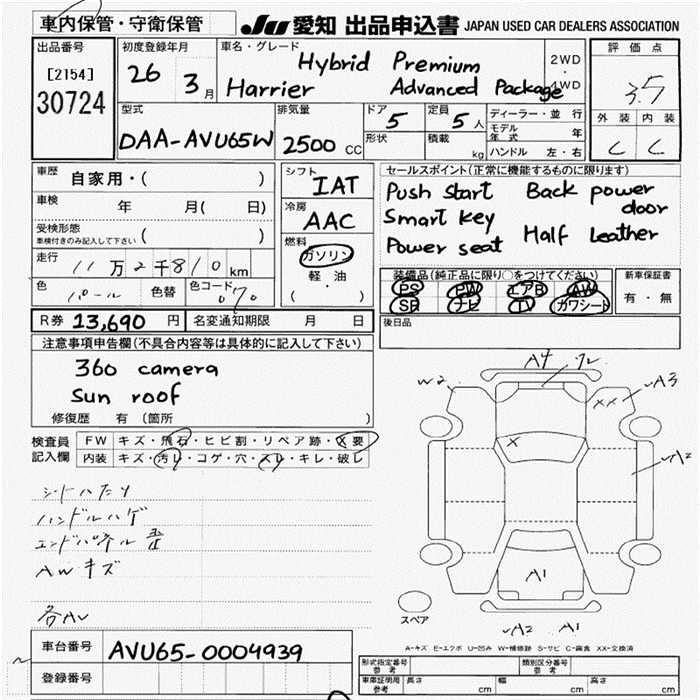 車内保管・守衛保管
JU 愛知 出品申込書 JAPAN USED CAR DEALERS ASSOCIATION
出品番号
[2154]
30724
初度登録年月
26 3月
車名・グレード
Hybrid Premium
Harrier Advanced Package
2WD
・
4WD
評価点
3.5
外装 内装
C C
型式
DAA-AVU65W
排気量
2500 CC
ドア
5
形状
定員
5人
積載
kg
ディーラー・並行
モデル年式 年
ハンドル 左・右
車歴
自家用・( )
車検
年 月( 日)
受検形態
車検付きのみ記入して下さい ( )
走行
11万2千810km
色 パール 色替 色コード 070
シフト
IAT
冷房
AAC
燃料
ガソリン
軽・油
( )
セールスポイント(正常に機能するものに限ります)
Push start Back power door
Smart key
Power seat Half Leather
装備品(純正品に限り○をつけてください)
PS PW エアB AW
SR ナビ TV カワシート
新車保証書
有・無
後日品
R券 13,690 円 名変通知期限 月 日
注意事項申告欄(不具合内容等は具体的に記入して下さい)
360 camera
Sun roof
修復歴 有 (箇所 )
検査員記入欄
FW キズ・飛石・ヒビ割・リペア跡・X要
内装 キズ・汚レ・コゲ・穴・スレ・キレ・破レ
シートハたり
ハンドルハゲ
エンドパネル歪
AWキズ
各AU
A4
W2
A3
XX
X
A2
A1
A2 A1
スペア
A-キズ E-エクボ U-凹み W-補修跡 S-サビ C-腐食 XX-交換済
車台番号 AVU65-0004939
登録番号
形式指定番号 参考
類別区分番号 参考
車庫証明用 参考 長さ cm 幅 cm 高さ cm